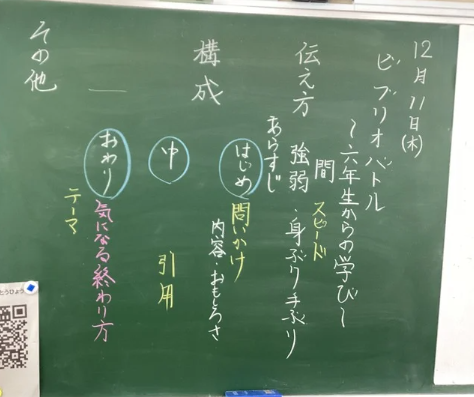 12月11日(木)
ビブリオバトル
〜六年生からの学び〜
伝え方
間
スピード
強弱
・身ぶり手ぶり
あらすじ
構成
はじめ
問いかけ
内容・おもしろさ
中
引用
おわり
気になる終わり方
テーマ
その他